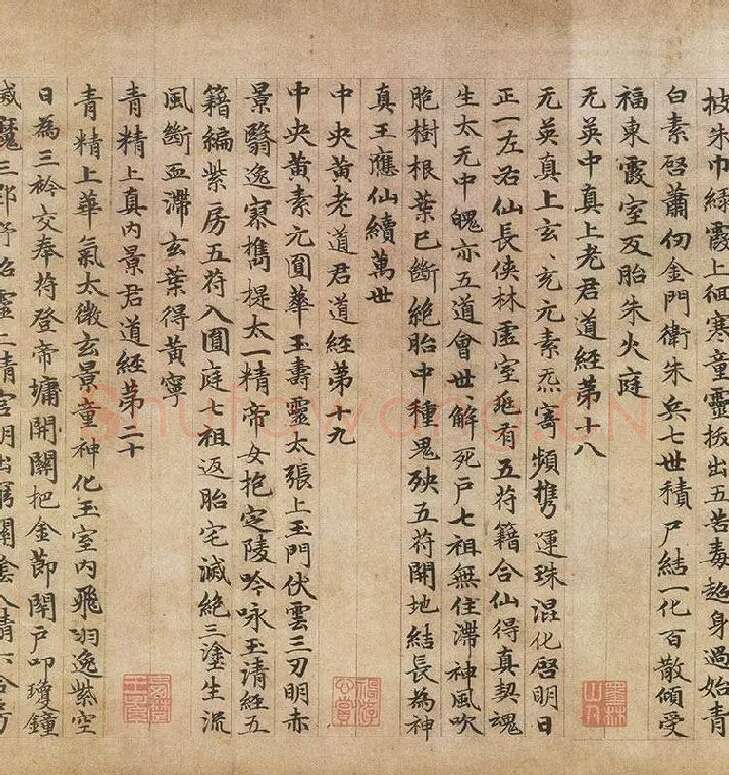 披朱巾綠霞上徊寒童靈拔出五苦毒超身過始青
白素啓蕭仞金門衛朱兵七世積尸結一化百散傾受
福東霞室反胎朱火庭
无英中真上老君道經第十八
无英真上玄、充元素炁寄頻携運珠混化啓明日
正一左右仙長俠林虛室廵有五符籍合仙得真契魂
生太无中魄亦五道會世、解死戸七祖無住滯神風吹
胞樹根葉已斷絕胎中種鬼殃五符開地結長為神
真王應仙續萬世
中央黃老道君道經第十九
中央黃素元圓華玉壽靈太張上玉門伏雲三刃明赤
景翳逸寥雋堤太一精帝女抱定陵吟咏玉清經五
籍編紫房五符入圓庭七祖返胎宅滅絕三塗生流
風斷血滯玄葉得黃寧
青精上真內景君道經第二十
青精上華氣太微玄景童神化玉室內飛羽逸紫空
日為三衿交奉符登帝墉開關把金節闢戸叩瓊鐘
滅魔三
ShufaWang.CN